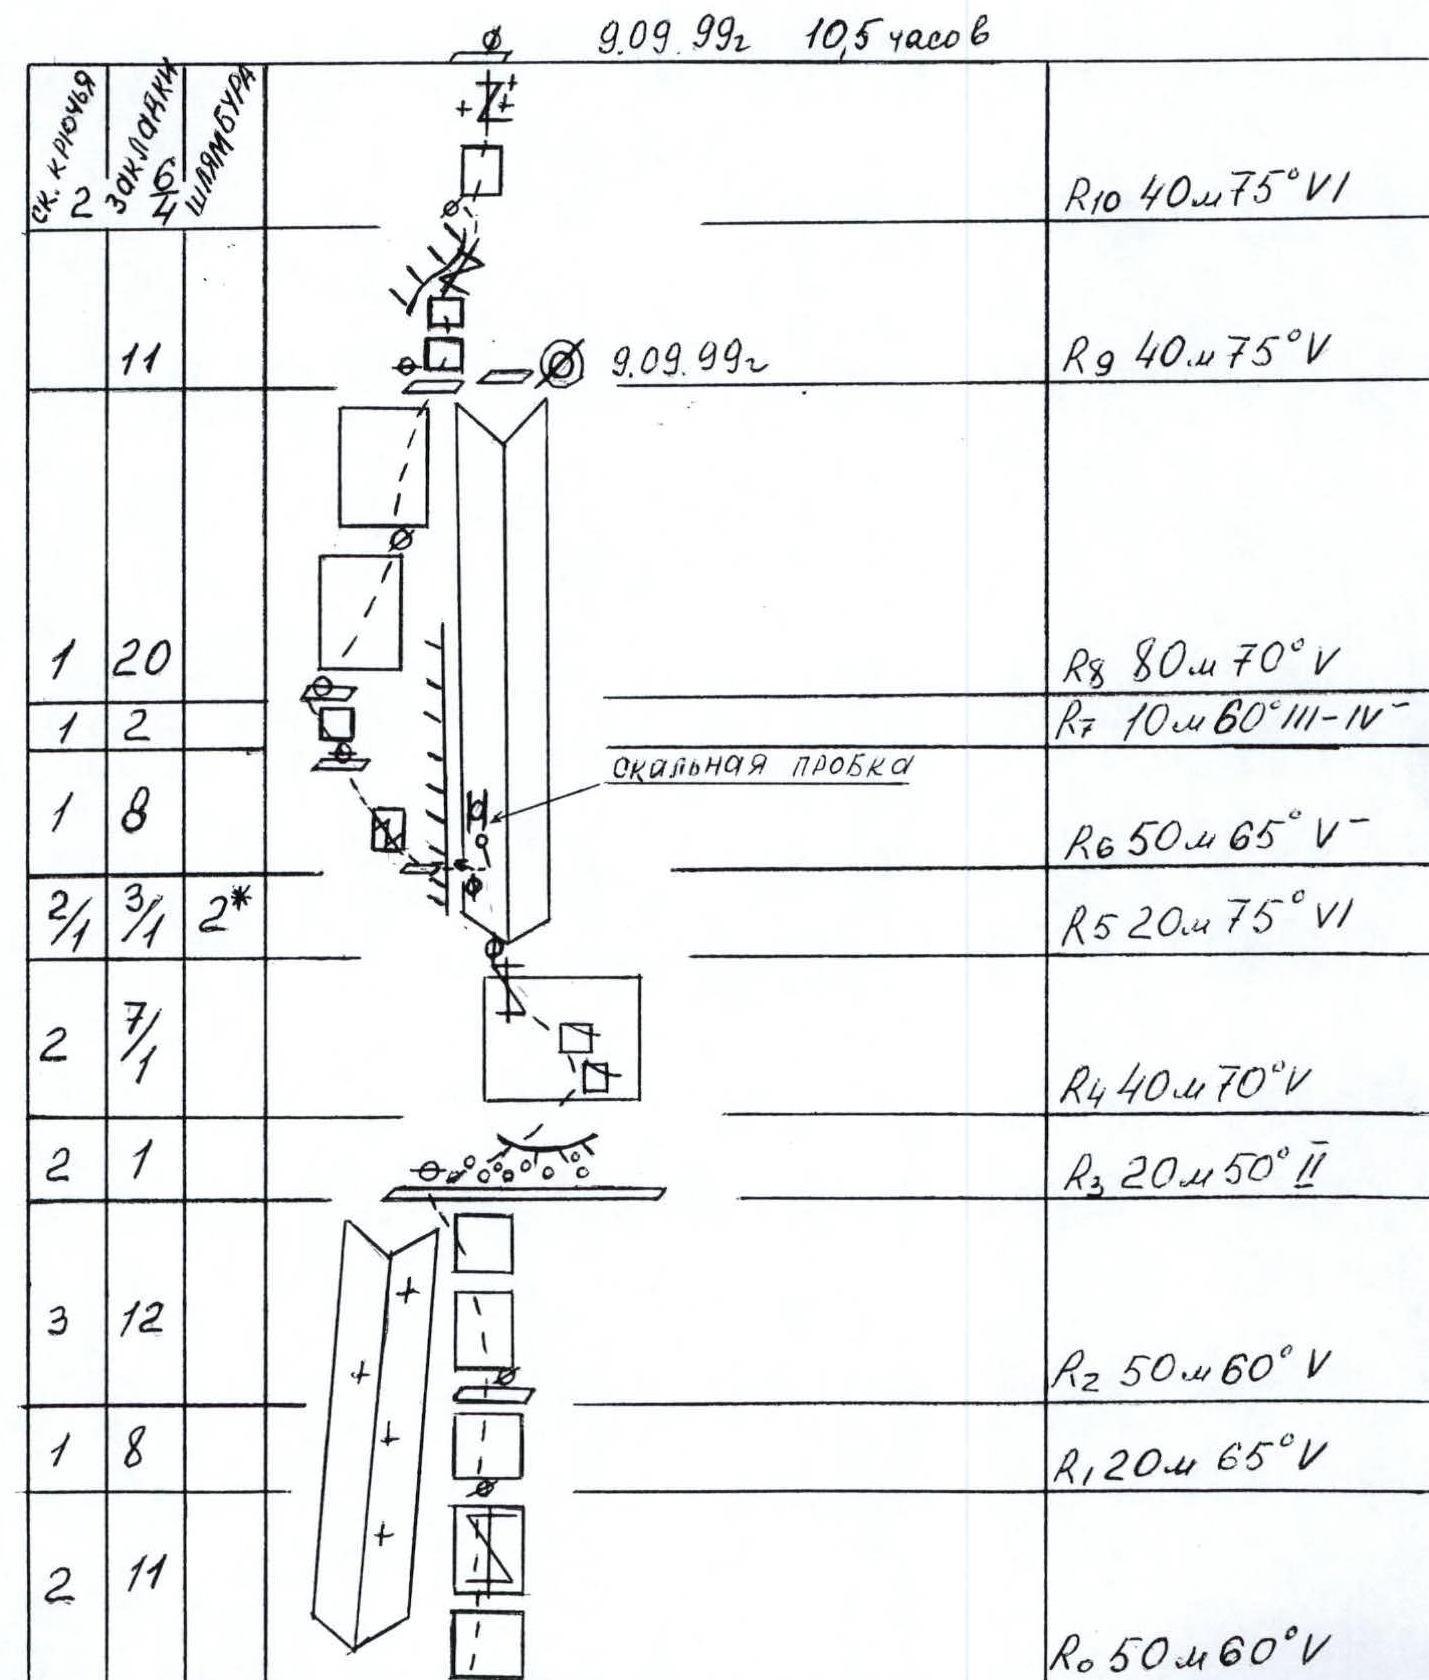 9.09.99г 10,5 часов
ск. крючья закладки шлямбура
2 6/4 R10 40м 75° VI
11 9.09.99г R9 40м 75° V
1 20 R8 80м 70° V
1 2 R7 10м 60° III-IV-
скальная пробка
1 8 R6 50м 65° V-
2/1 3/1 2* R5 20м 75° VI
2 7/1 R4 40м 70° V
2 1 R3 20м 50° II
3 12 R2 50м 60° V
1 8 R1 20м 65° V
2 11 R0 50м 60° V